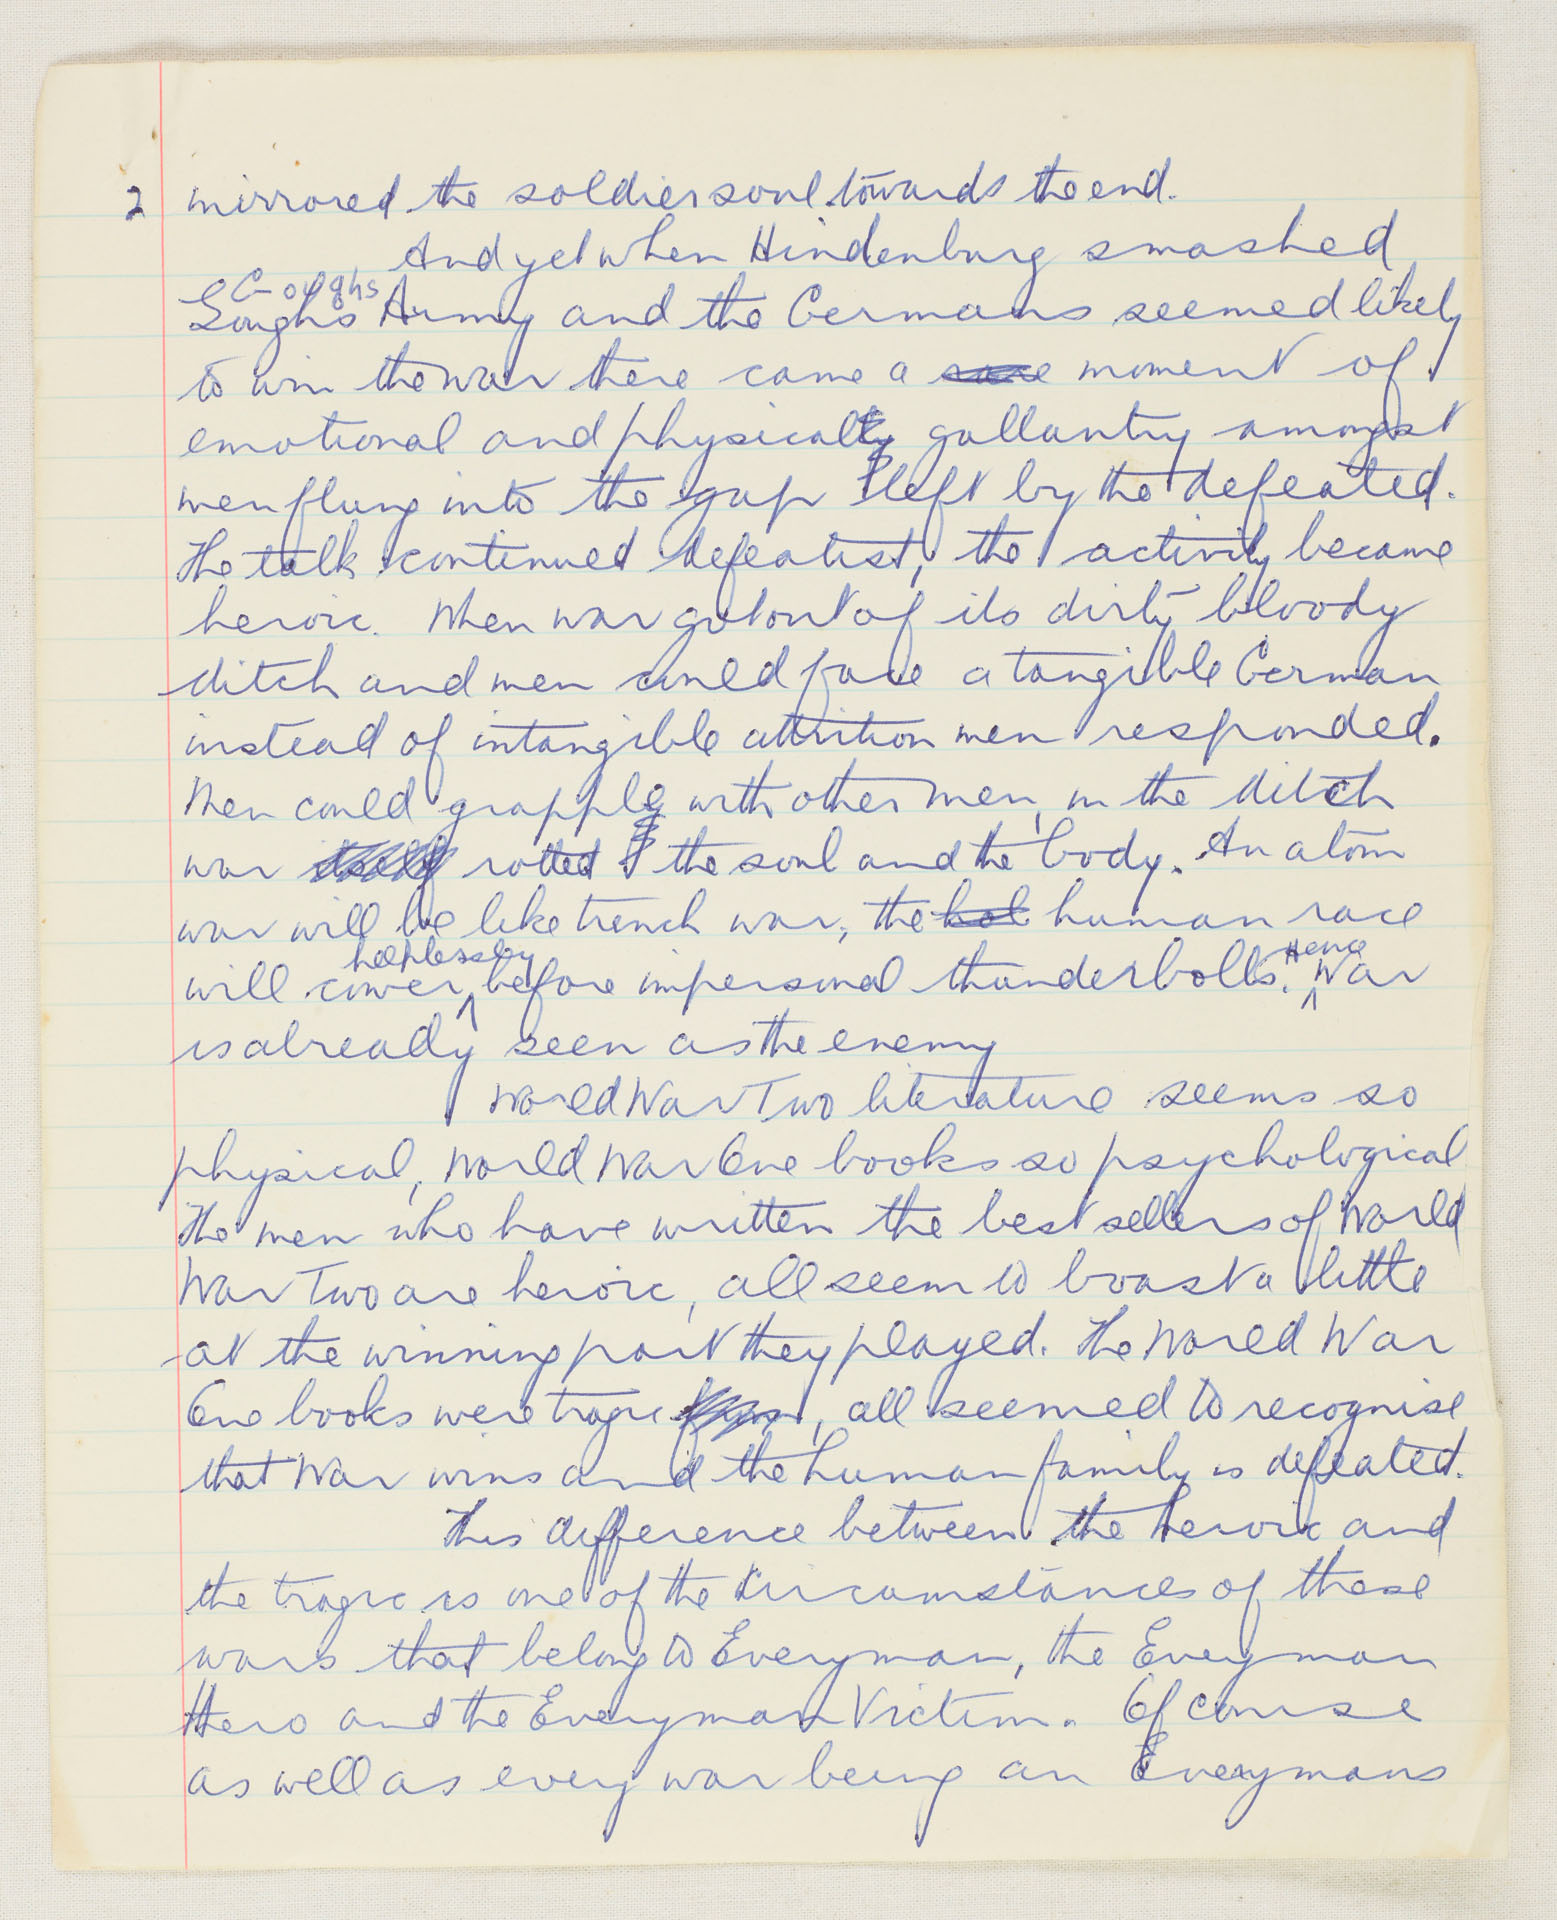 2 mirrored the soldier soul towards the end.
And yet when Hindenburg smashed
Goughs
Goughs Army and the Germans seemed likely
to win the war there came a rare moment of
emotional and physical gallantry amongst
men flung into the gap left by the defeated.
The talk continued defeatist, the activity became
heroic. When war got out of its dirty bloody
ditch and men could face a tangible German
instead of intangible attrition men responded.
Men could grapple with other men, in the ditch
war itself rotted the soul and the body. An atom
war will be like trench war, the hol human race
helplessly Hence
will cower before impersonal thunderbolts. War
is already seen as the enemy
World War Two literature seems so
physical, World War One books so psychological
The men who have written the best sellers of World
War Two are heroic, all seem to boast a little
at the winning part they played. The World War
One books were tragic, all seemed to recognise
that War wins and the human family is defeated.
This difference between the heroic and
the tragic is one of the circumstances of these
wars that belong to Everyman, the Everyman
Hero and the Everyman Victim. Of course
as well as every war being an Everymans